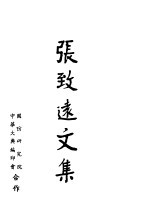 張致遠文集
國防研究院
中華大典編印會
合作